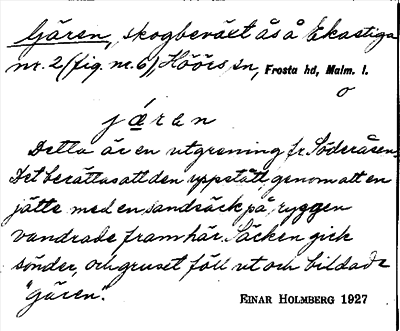 Gären, skogbeväxt ås å Ekastiga
nr. 2 (fig. nr. 6) Höörs sn, Frosta hd, Malm. l.
o
järan
Detta är en utgrening fr. Söderåsen.
Det berättas att den uppstått, genom att en
jätte med en sandsäck på ryggen
vandrade fram här. Säcken gick
sönder, och gruset föll ut och bildade
"Gären".
EINAR HOLMBERG 1927